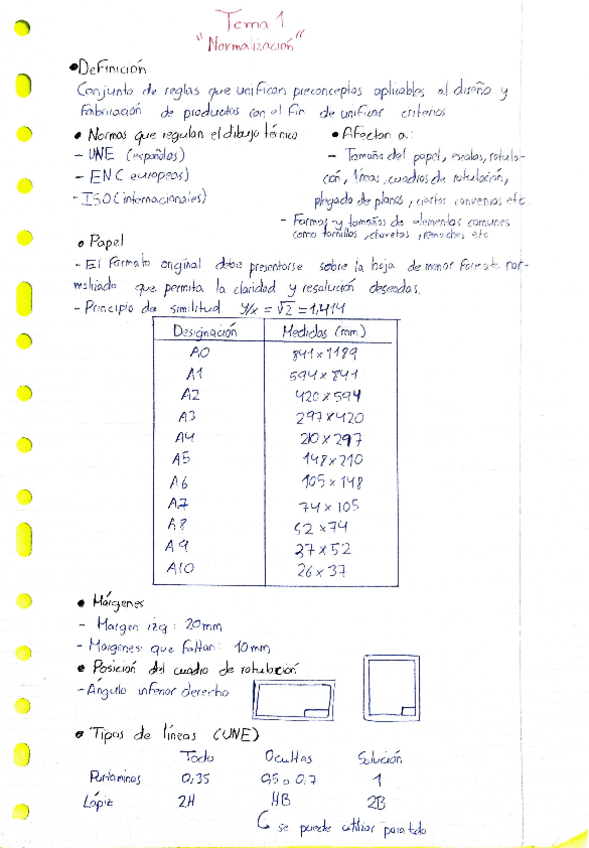 Tema 1
"Normalización"
• Definición
Conjunto de reglas que unifican preconceptos aplicables al diseño y
fabricación de productos con el fin de unificar criterios
• Normas que regulan el dibujo técnico
- UNE (españolas)
- EN (europeas)
- ISO (internacionales)
• Afectan a:
- Tamaño del papel, escalas, rotula-
ción, líneas, cuadros de rotulación,
plegado de planos, ciertos convenios etc
- Formas y tamaños de elementos comunes
como tornillos, chavetas, remaches etc
• Papel
- El formato original debe presentarse sobre la hoja de menor formato nor-
malizado que permita la claridad y resolución deseadas.
- Principio de similitud y/x = √2 = 1,414
Designación Medidas (mm)
A0 841 x 1189
A1 594 x 841
A2 420 x 594
A3 297 x 420
A4 210 x 297
A5 148 x 210
A6 105 x 148
A7 74 x 105
A8 52 x 74
A9 37 x 52
A10 26 x 37
• Márgenes
- Margen izq: 20mm
- Margenes que faltan: 10mm
• Posición del cuadro de rotulación
- Ángulo inferior derecho
• Tipos de líneas (UNE)
Todo Ocultas Solución
0,35 0,5 o 0,7 1
Lápiz 2H HB 2B
se puede utilizar para todo